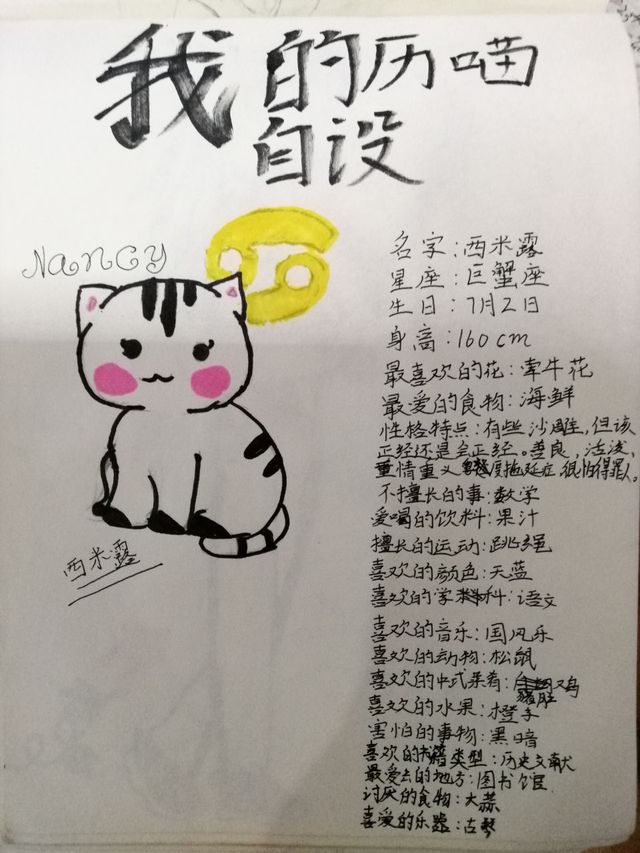 我的历喵
自设
Nancy
名字:西米露
星座:巨蟹座
生日:7月2日
身高:160cm
最喜欢的花:牵牛花
最爱的食物:海鲜
性格特点:有些沙雕,但该
正经还是会正经。善良,活泼、
重情重义 度拖延症 很怕得罪人。
不擅长的事:数学
爱喝的饮料:果汁
擅长的运动:跳绳
喜欢的颜色:天蓝
喜欢的学科:语文
喜欢的音乐:国风乐
喜欢的动物:松鼠
喜欢的中式菜肴:猪肚鸡
喜欢的水果:橙子
害怕的事物:黑暗
喜欢的书籍类型:历史文献
最爱去的地方:图书馆
讨厌的食物:大蒜
喜爱的乐器:古琴
西米露